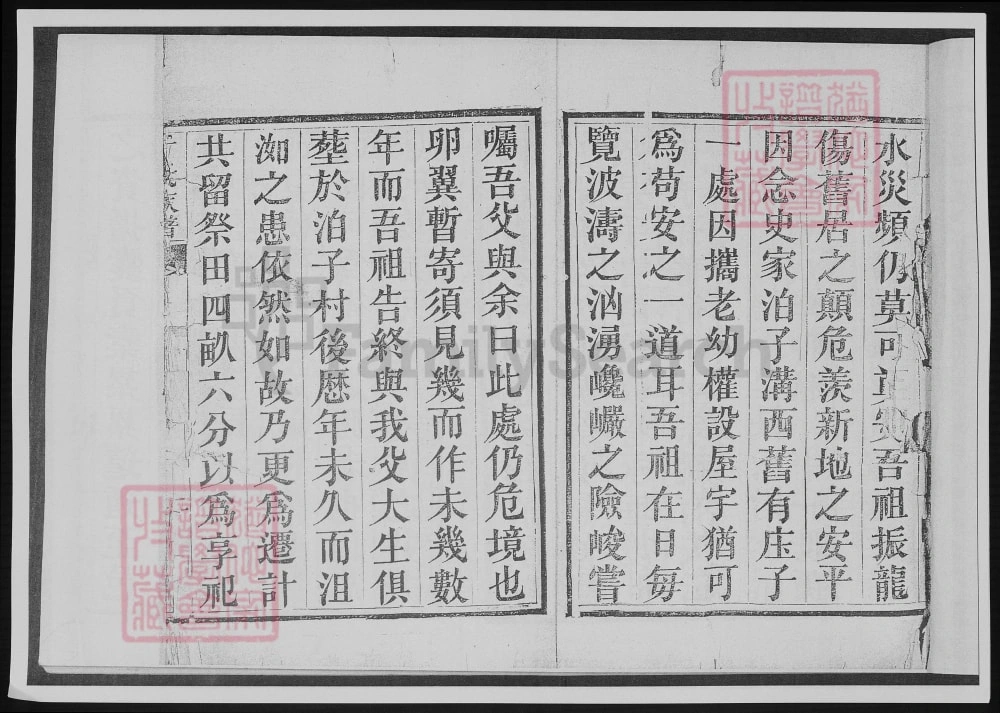 水災頻仍莫可 吾祖振龍
傷舊居之顛危羨新地之安平
因念史家泊子溝西舊有庄子
一處因攜老幼權設屋宇猶可
爲苟安之一道耳吾祖在日每
覽波濤之汹湧巉巗之險峻嘗
囑吾父與余曰此處仍危境也
卵翼暫寄須見幾而作未幾數
年而吾祖告終與我父大生俱
塟於泊子村後歷年未久而沮
洳之患依然如故乃更爲遷計
共留祭田四畝六分以爲享祀
族譜
FamilySearch